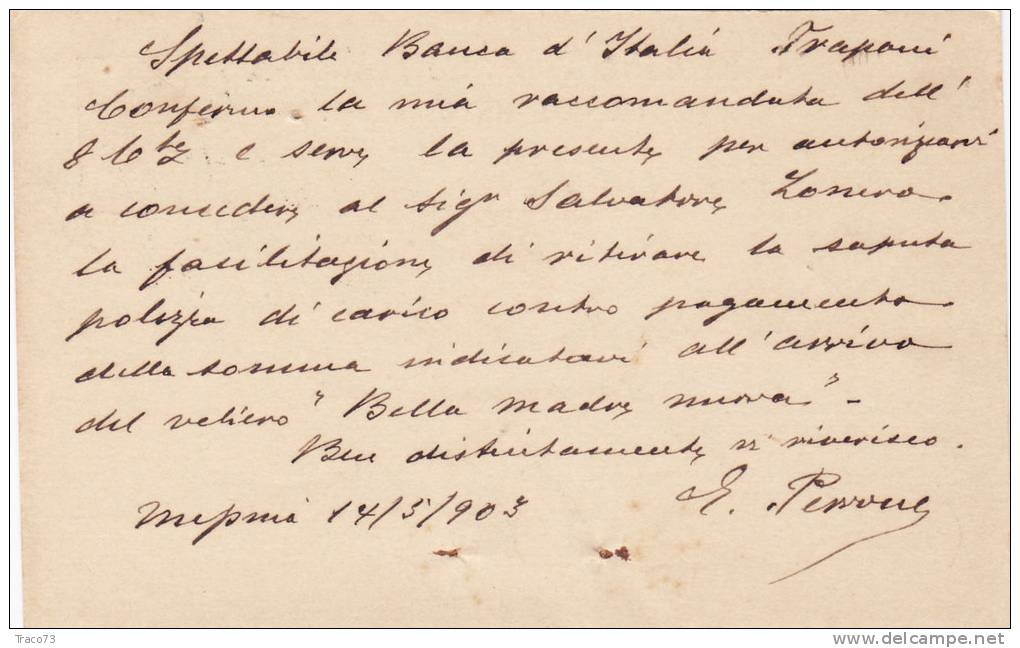 Spettabile Banca d'Italia Trapani
Confermo la mia raccomandata dell'
8 Cte. e serve la presente per autorizzarvi
a concedere al Sigr Salvatore Zonero
la facilitazione di ritirare la saputa
polizza di carico contro pagamento
della somma indicatavi all'arrivo
del veliero "Bella madre nuova" -
Ben distintamente vi riverisco.
Messina 14/5/903 E. Perrone
Traco73
delcampe.net